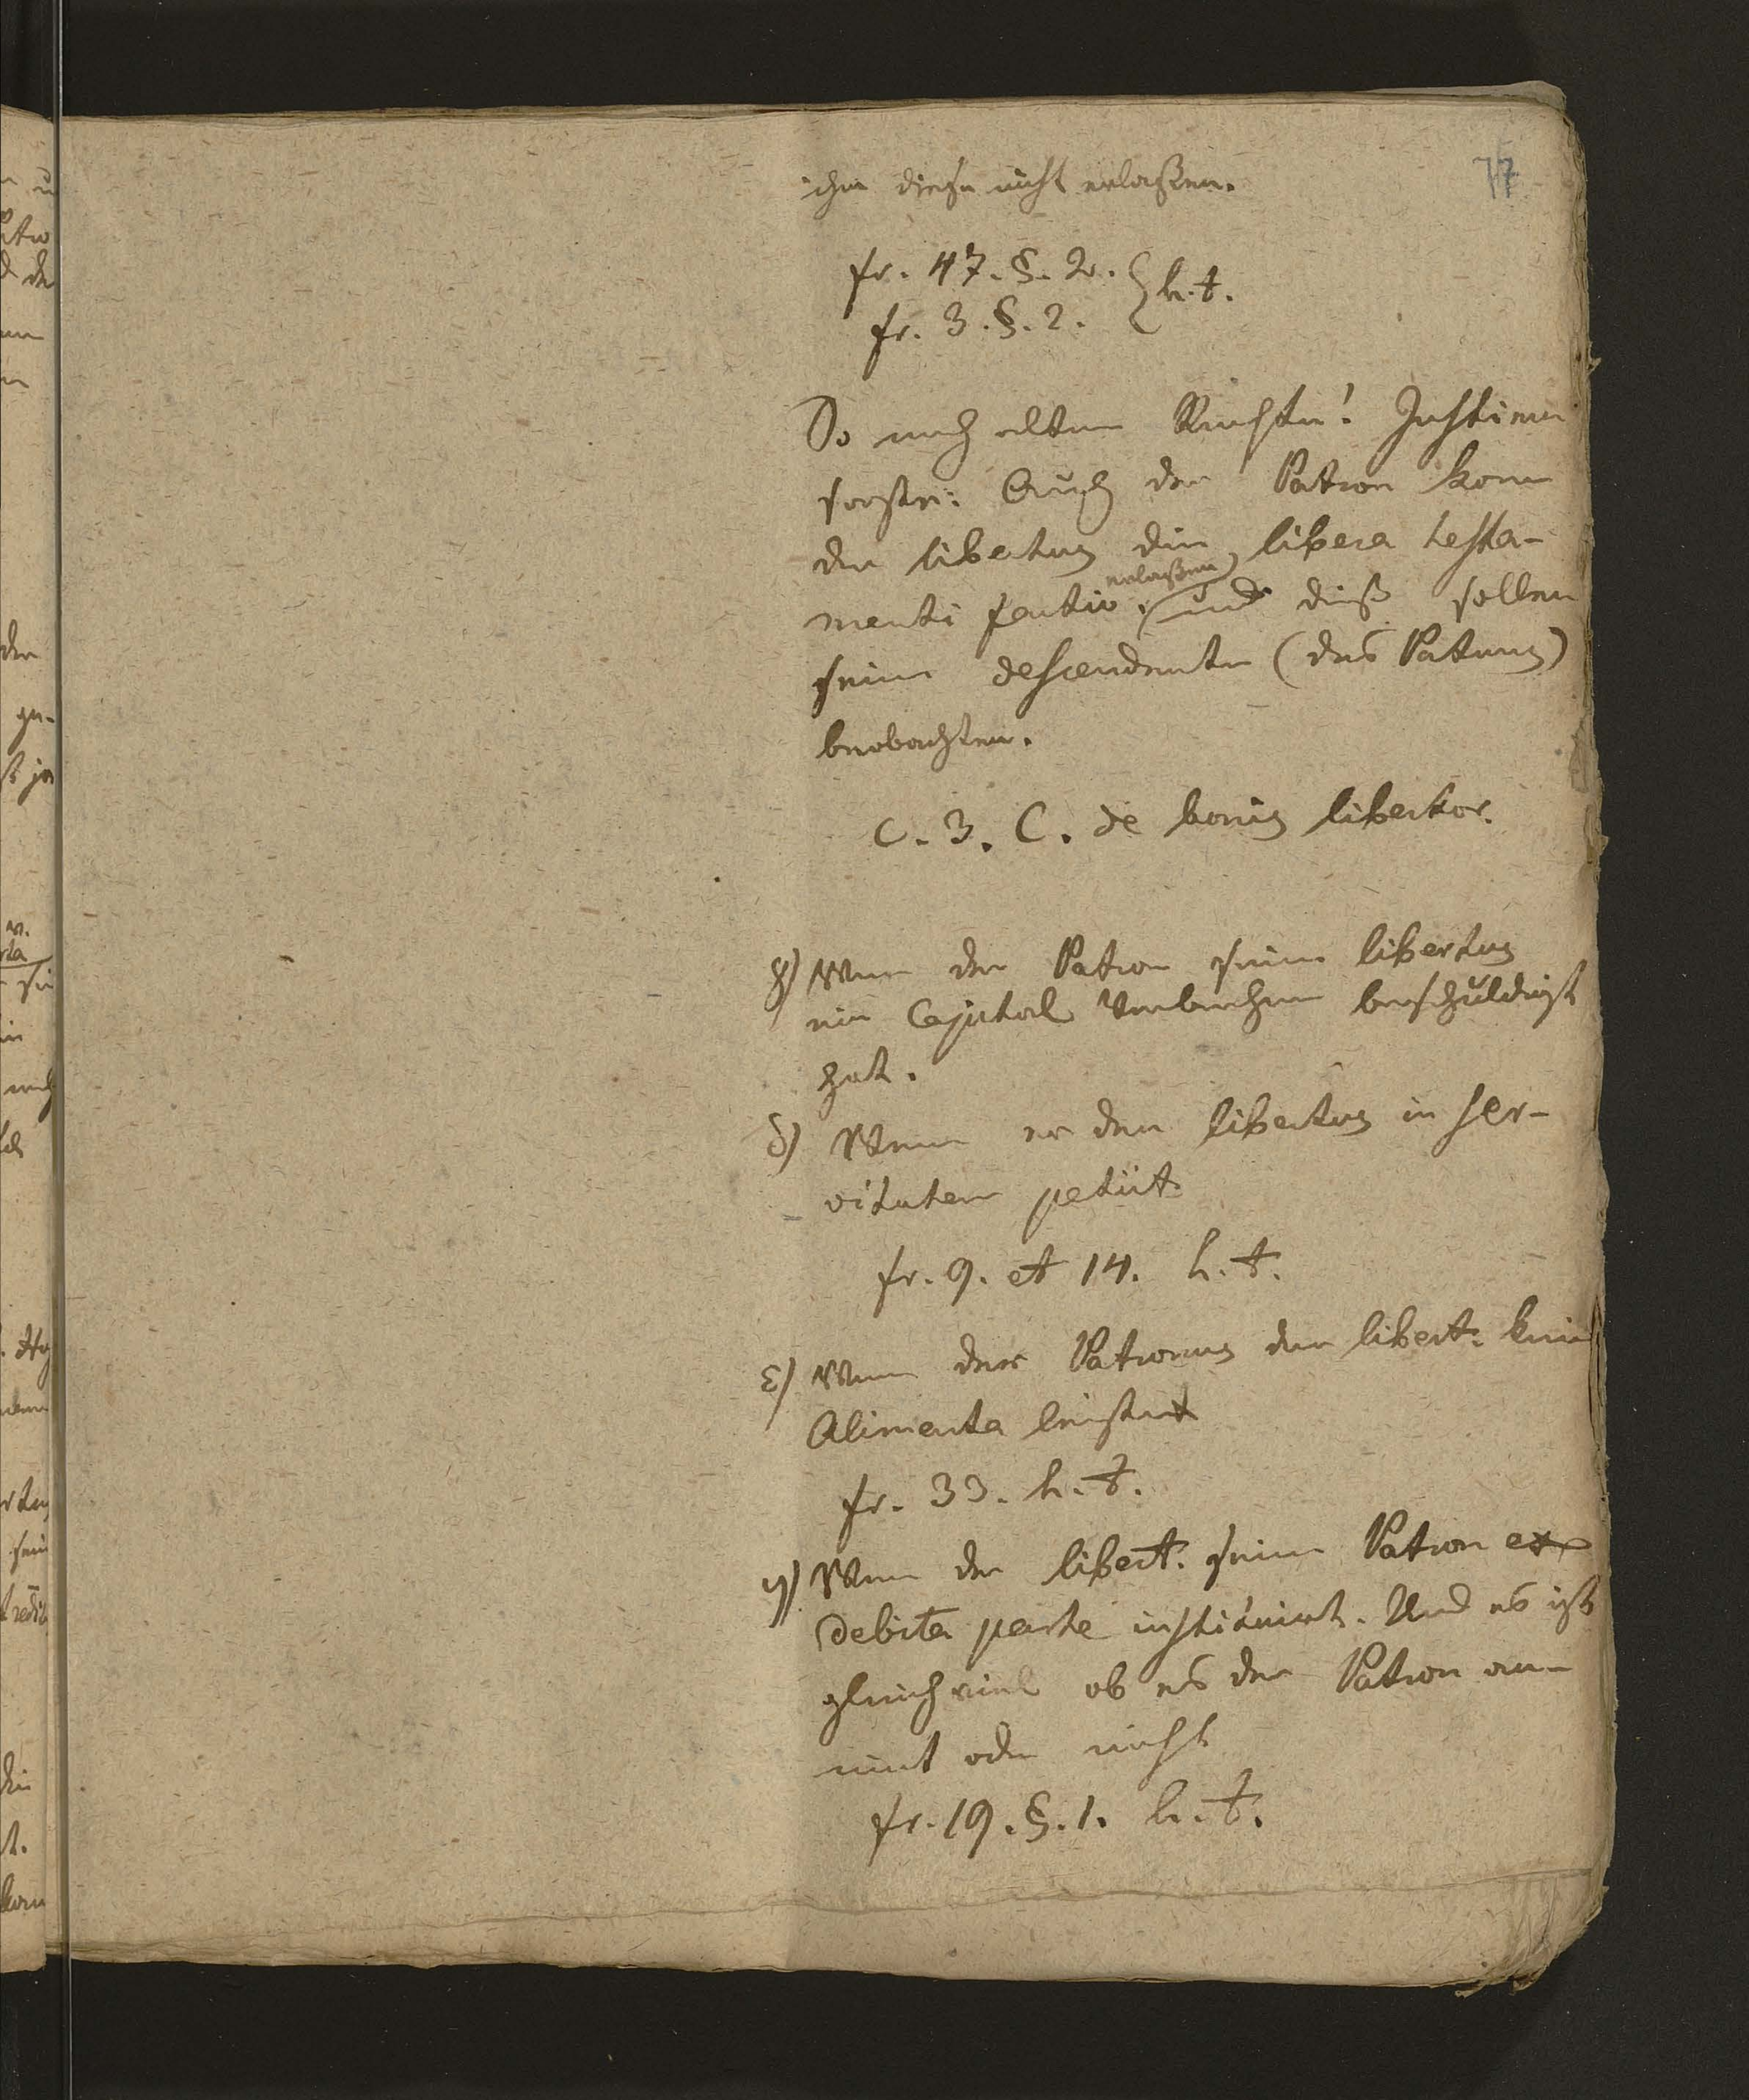 77
ihm diese nicht erlaßen.
fr. 47. §. 2. } h. t.
fr. 3. §. 2.
So nach alten Rechten! Justinian
sagte: Auch der Patron kann
den libertus die libera testa-
menti factio erlaßen, und dieß sollen
seine descendenten (des Patrons)
beobachten.
C. 3. C. de bonis libertor.
γ) Wenn der Patron seinen libertus
ein Capital Verbrechen beschuldigt
hat.
δ) Wenn er den libertus in ser-
vitutem petiit
fr. 9. et 14. h. t.
ε) Wenn der Patronus dem libert. keine
Alimenta leistet
fr. 33. h. t.
η) Wenn der libert. seinen Patron ex
debita parte instituirt. Und es ist
gleich viel ob es der Patron an-
nimt oder nicht
fr. 19. §. 1. h. t.